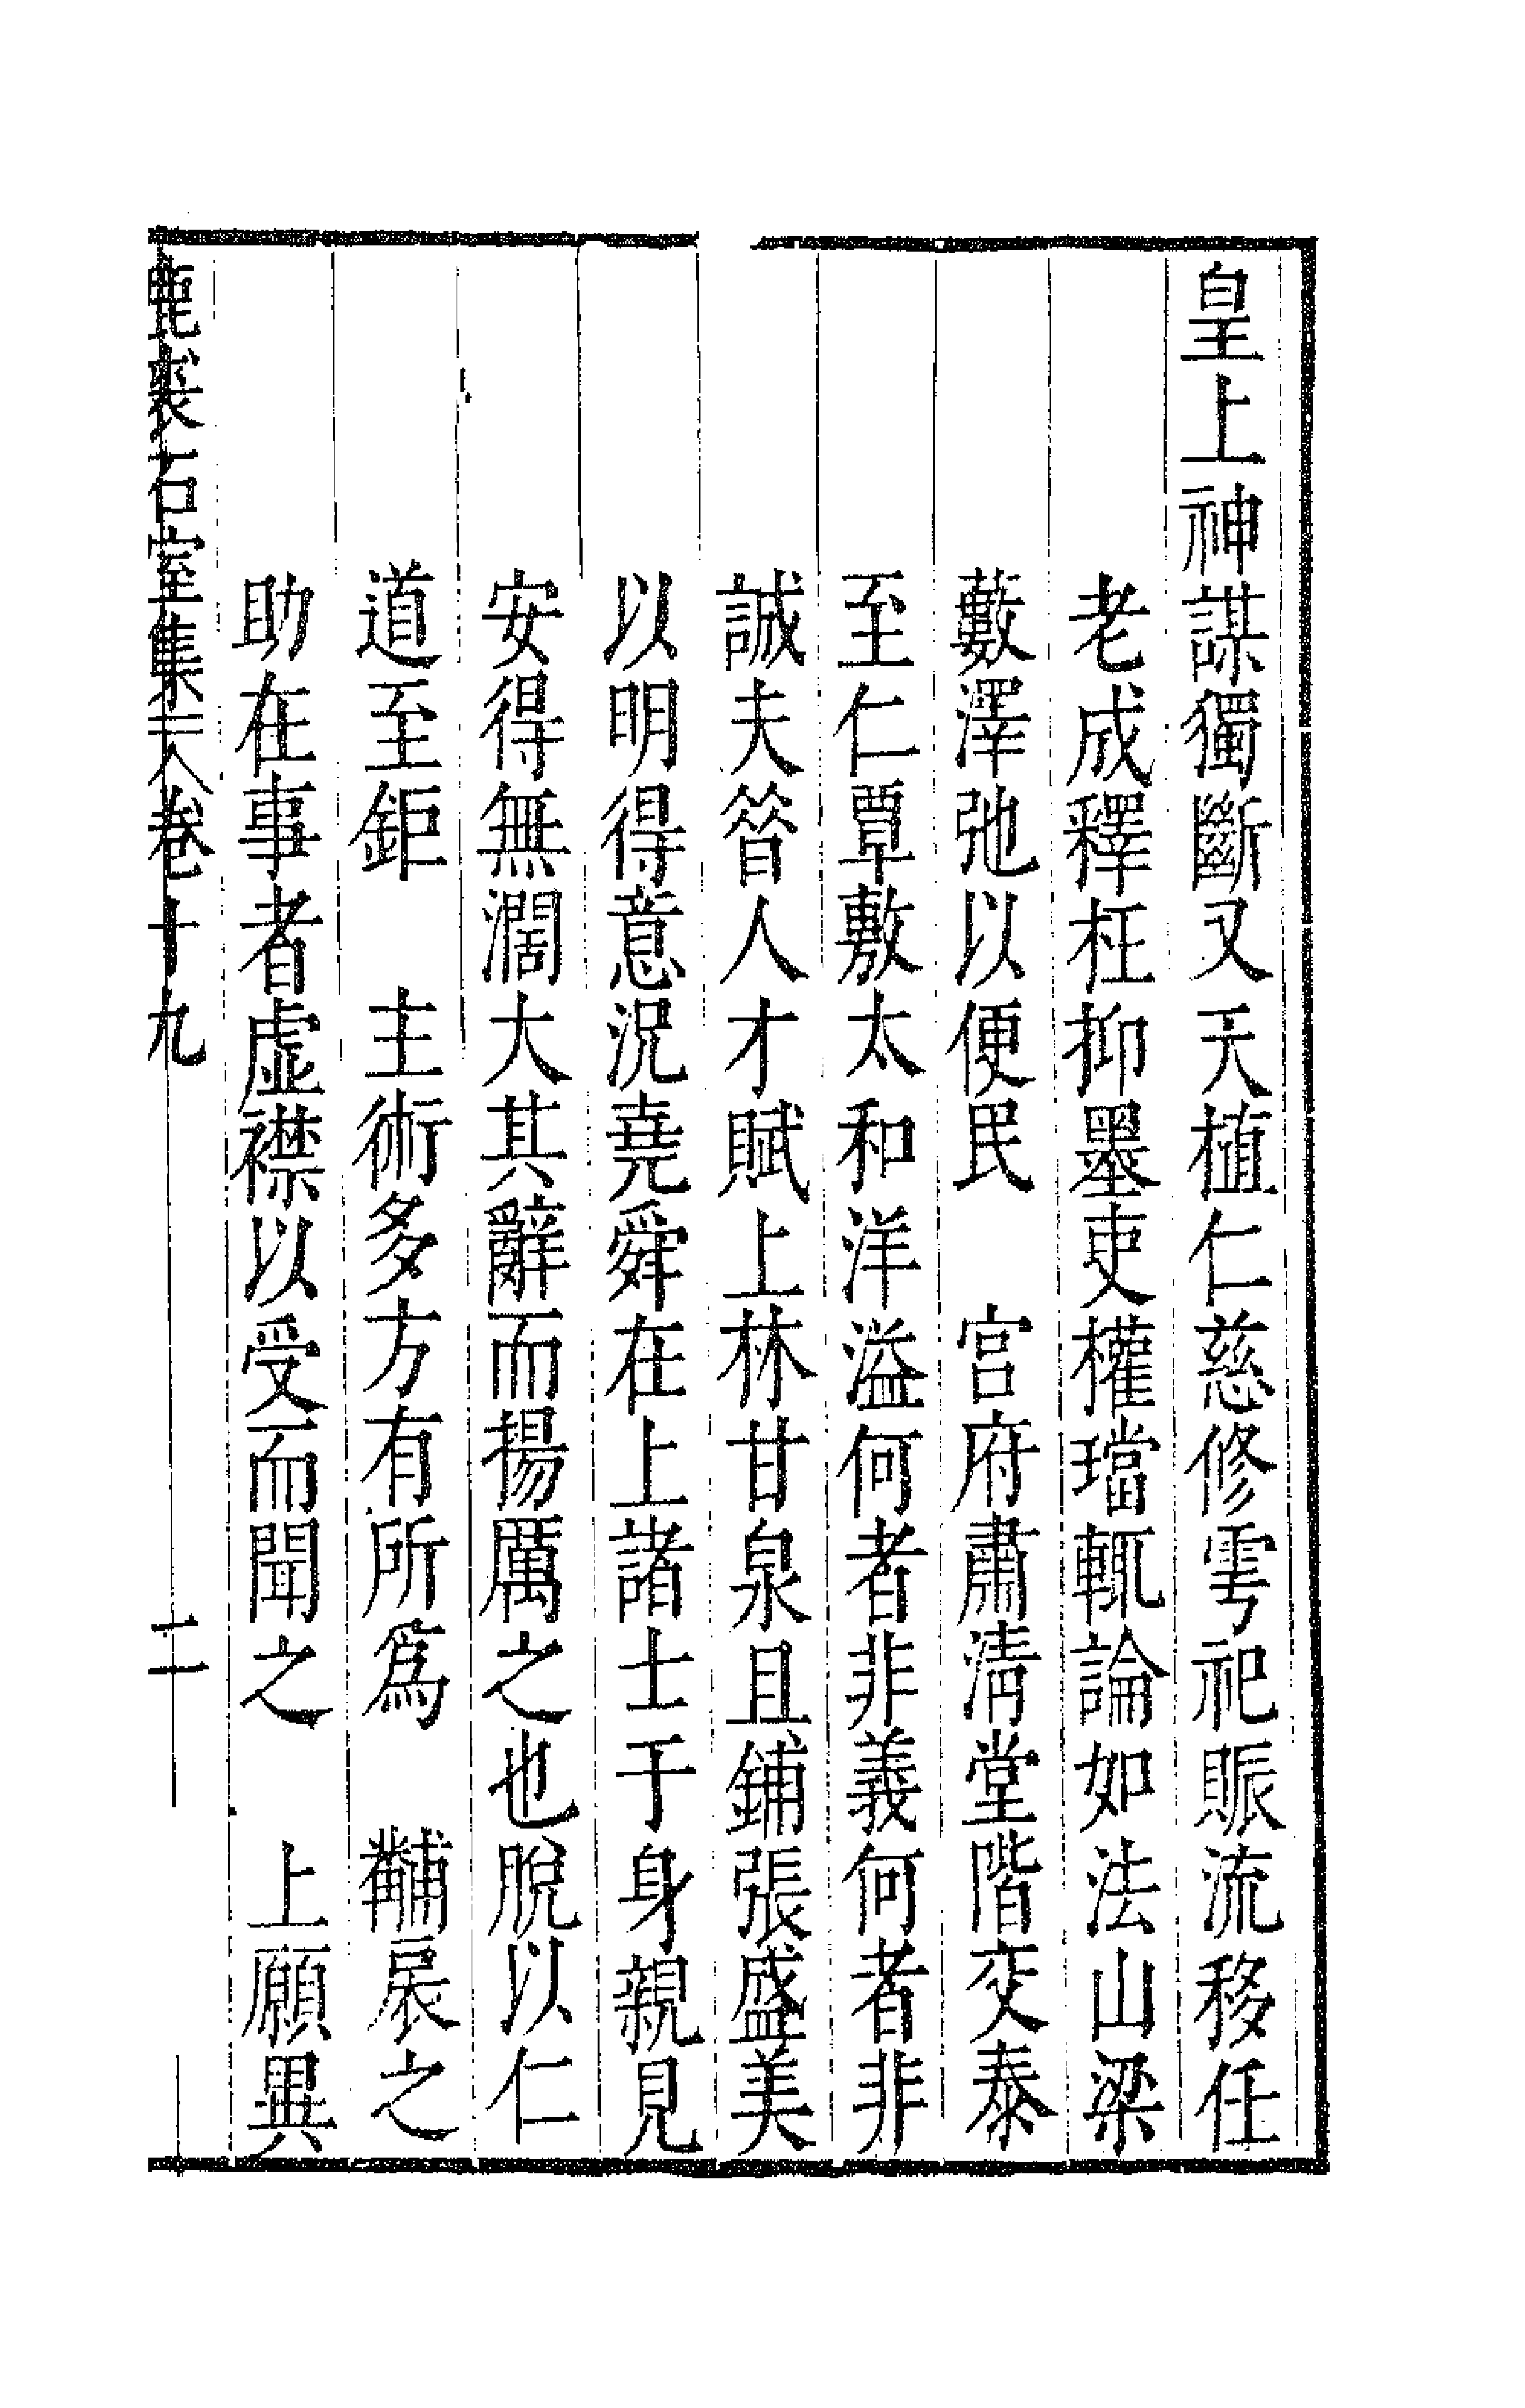 皇上神謀獨斷又天植仁慈修雩祀賑流移任
老成釋枉抑墨吏權璫輒論如法山梁
藪澤弛以便民　宮府肅清堂階交泰
至仁覃敷太和洋溢何者非義何者非
誠夫簪人才賦上林甘泉且鋪張盛美
以明得意況堯舜在上諸士于身親見
安得無濶大其辭而揚厲之也脫以仁
道至鉅　主術多方有所爲　黼扆之
助在事者虛襟以受而聞之　上願異
鹿裘石室集　卷十九　二